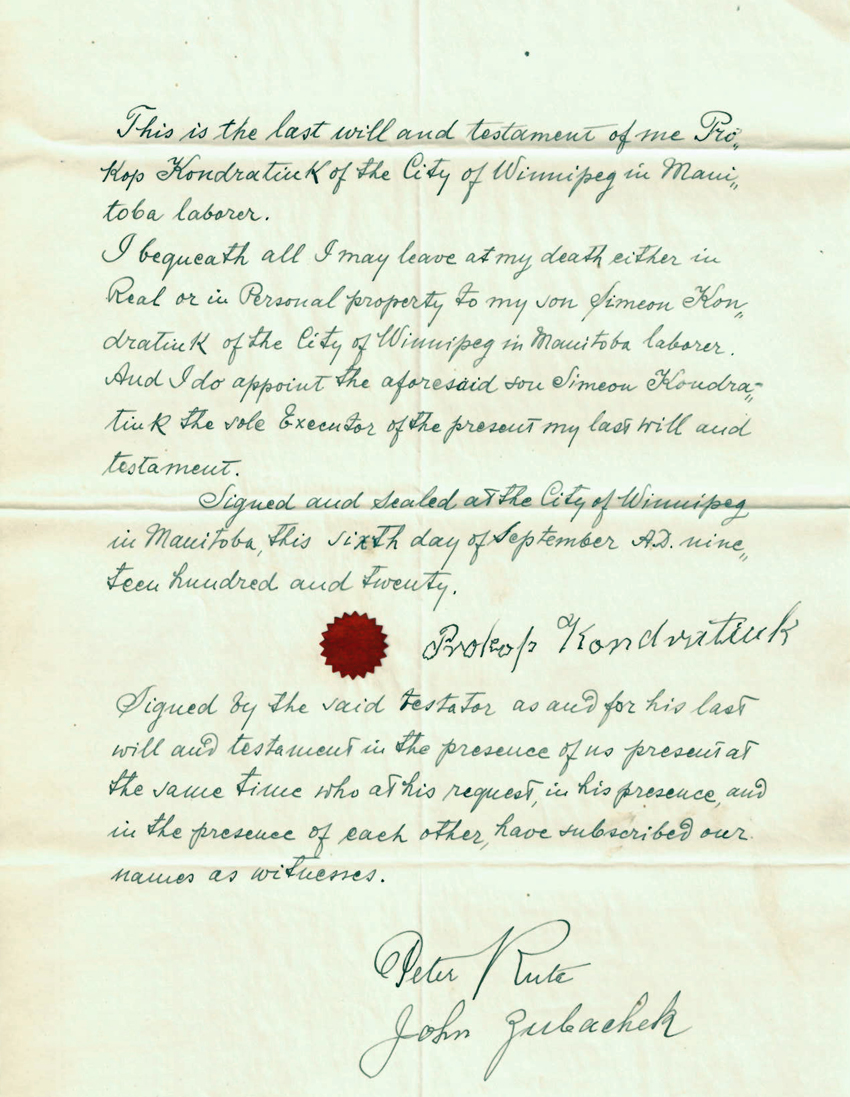 This is the last will and testament of me Pro„
kop Kondratiuk of the City of Winnipeg in Mani„
toba laborer.
I bequeath all I may leave at my death either in
Real or in Personal property to my son Simeon Kon„
dratiuk of the City of Winnipeg in Manitoba laborer.
And I do appoint the aforesaid son Simeon Kondra„
tiuk the sole Executor of the present my last will and
testament.
Signed and sealed at the City of Winnipeg
in Manitoba, this sixth day of September A.D. nine„
teen hundred and twenty.
Prokop Kondratiuk
Signed by the said testator as and for his last
will and testament in the presence of us present at
the same time who at his request, in his presence, and
in the presence of each other, have subscribed our
names as witnesses.
Peter
John Zubachek